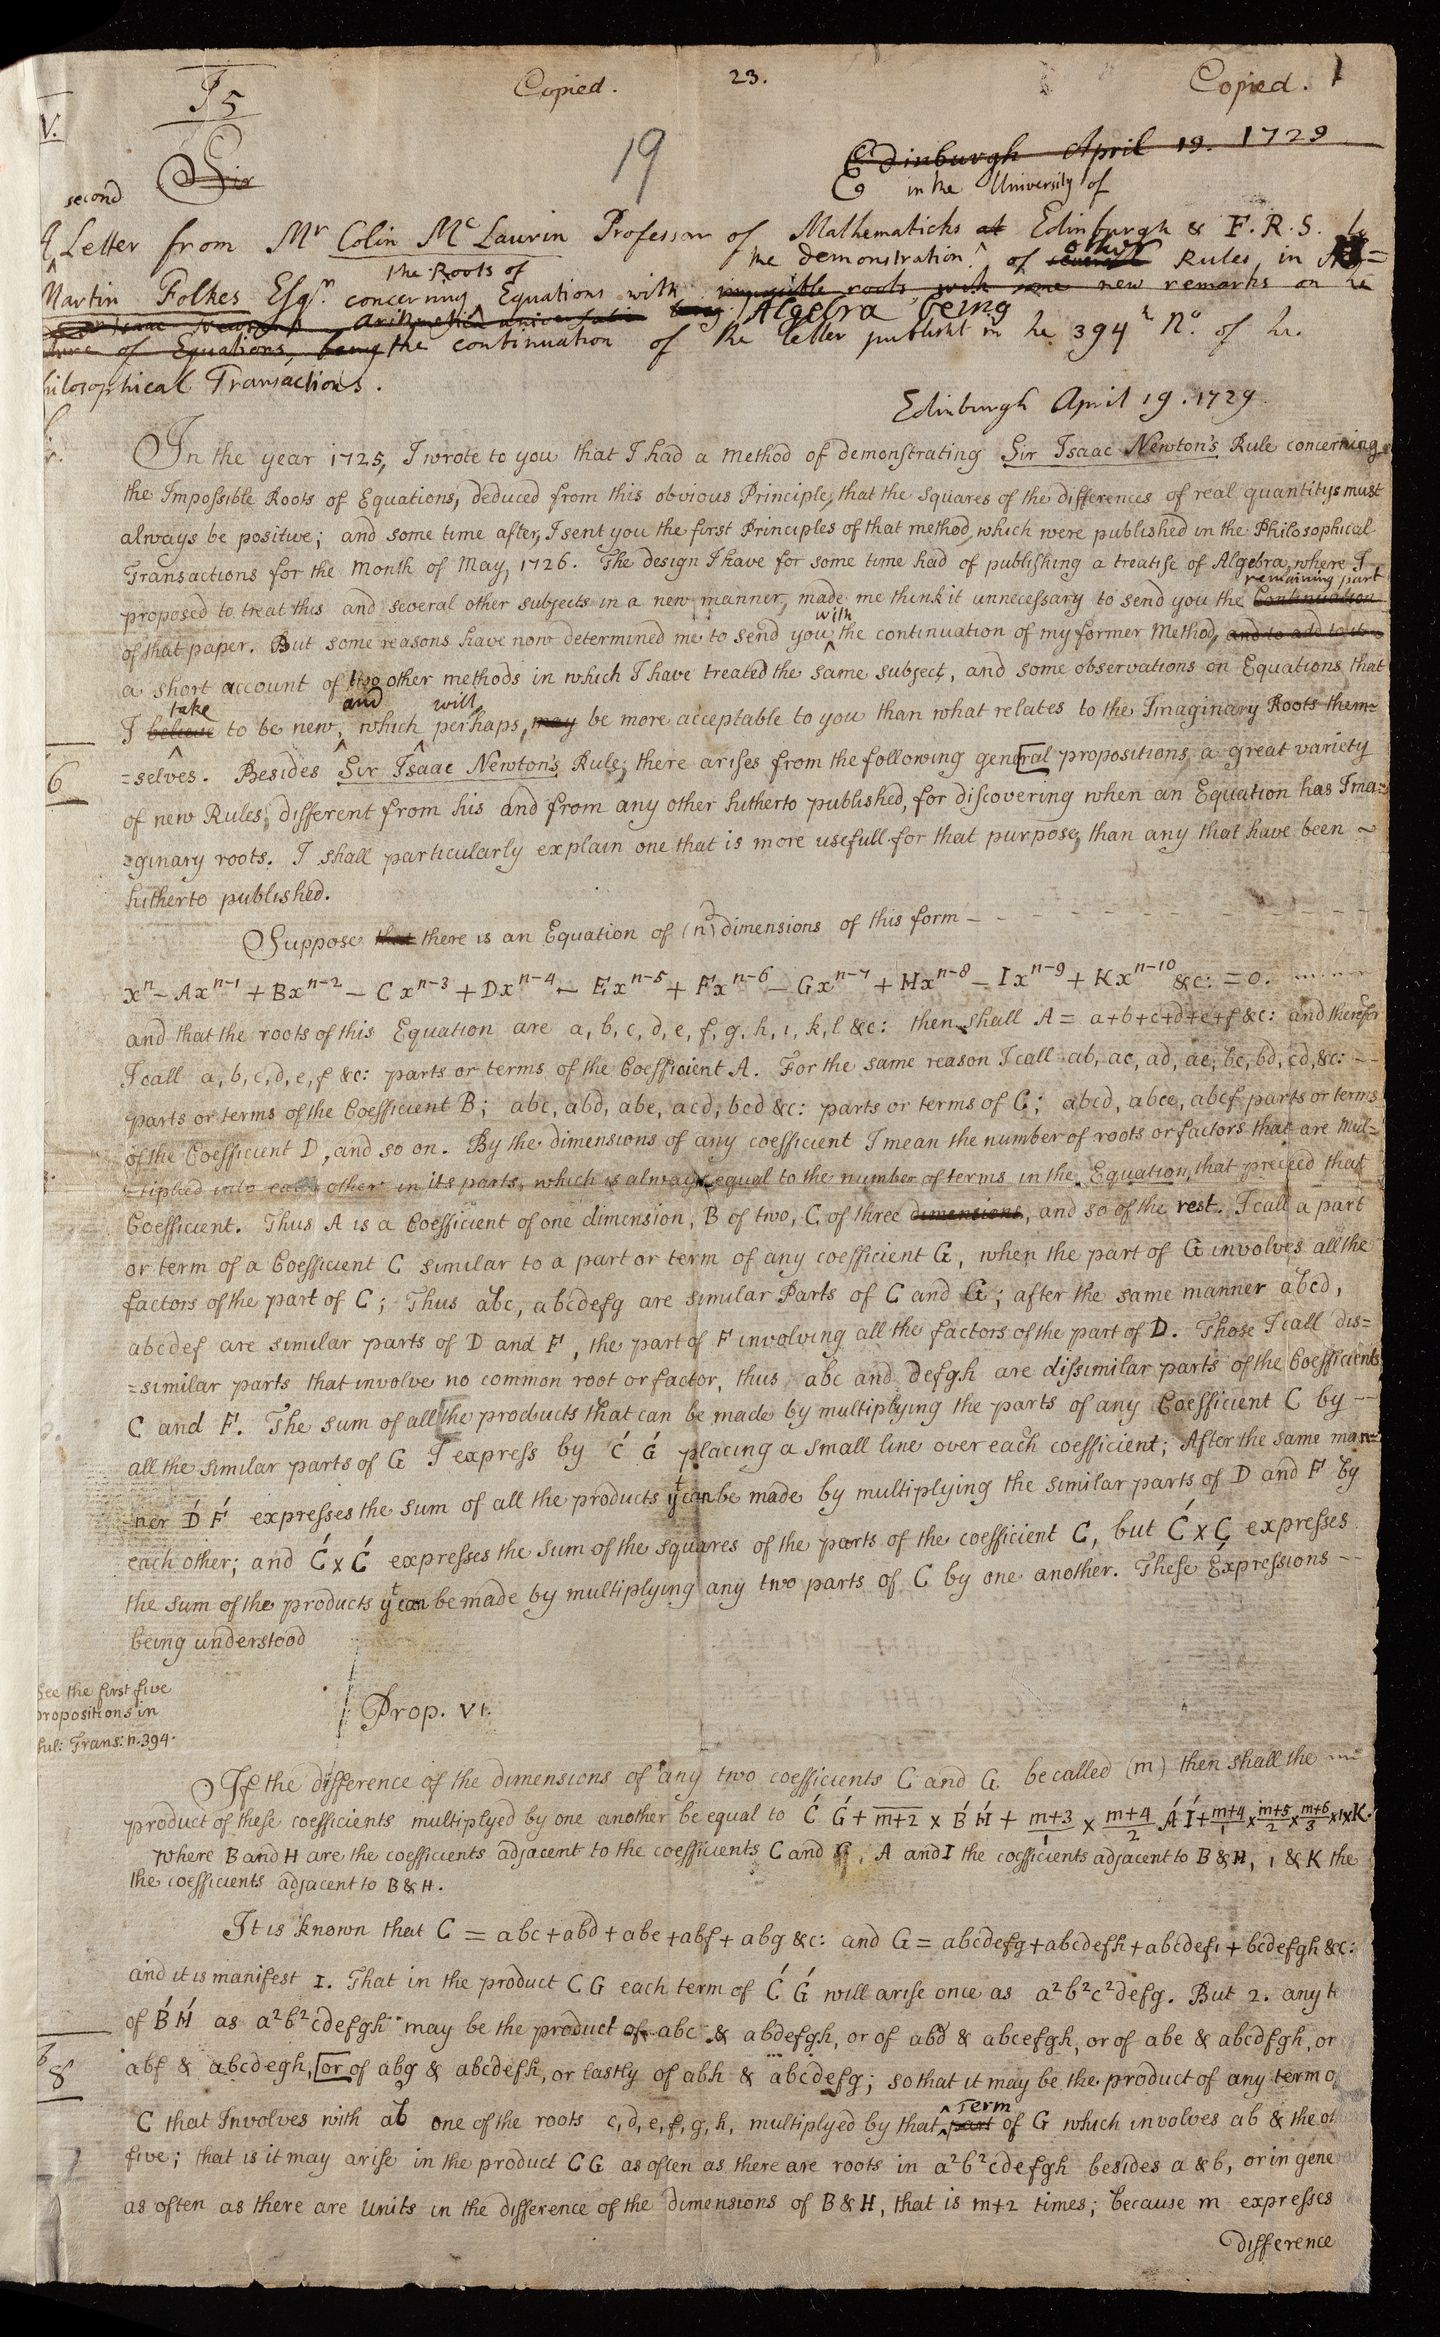 I 5
Copied.
23.
Copied. 1
V.
19
Sir
Edinburgh April 19. 1729
second
in the University of
A Letter from Mr Colin McLaurin Professor of Mathematicks at Edinburgh & F.R.S. to
the Roots of
the demonstration of several other Rules in
Martin Folkes Esqr. concerning Equations with impossible roots, with some new remarks on the
Algebra being
of Equations, being the continuation of the letter publisht in the 394th No. of the
Philosophical Transactions.
Edinburgh April 19. 1729.
In the year 1725, I wrote to you that I had a method of demonstrating Sir Isaac Newton's Rule concerning
the Impossible Roots of Equations, deduced from this obvious Principle, that the squares of the differences of real quantitys must
always be positive; and some time after, I sent you the first Principles of that method, which were published in the Philosophical
Transactions for the Month of May, 1726. The design I have for some time had of publishing a treatise of Algebra, where I
remaining part
proposed to treat this and several other subjects in a new manner, made me think it unnecessary to send you the Continuation
with
of that paper. But some reasons have now determined me to send you the continuation of my former Method, and to add to it
a short account of two other methods in which I have treated the same subject, and some observations on Equations that
take and will
I believe to be new, which perhaps, may be more acceptable to you than what relates to the Imaginary Roots them=
6
=selves. Besides Sir Isaac Newton's Rule, there arises from the following general propositions, a great variety
of new Rules, different from his and from any other hitherto published, for discovering when an Equation has Ima=
=ginary roots. I shall particularly explain one that is more usefull for that purpose, than any that have been
hitherto published.
Suppose that there is an Equation of (n) dimensions of this form - - - - - - - - - - - -
xⁿ - Axⁿ⁻¹ + Bxⁿ⁻² - Cxⁿ⁻³ + Dxⁿ⁻⁴ - Exⁿ⁻⁵ + Fxⁿ⁻⁶ - Gxⁿ⁻⁷ + Hxⁿ⁻⁸ - Ixⁿ⁻⁹ + Kxⁿ⁻¹⁰ &c: = 0.
and that the roots of this Equation are a, b, c, d, e, f, g, h, i, k, l &c: then shall A = a+b+c+d+e+f &c: and therefor
I call a, b, c, d, e, f &c: parts or terms of the Coefficient A. For the same reason I call ab, ac, ad, ae, bc, bd, cd, &c: --
parts or terms of the Coefficient B; abc, abd, abe, acd, bcd &c: parts or terms of C; abcd, abce, abcf parts or terms
of the Coefficient D, and so on. By the dimensions of any coefficient I mean the number of roots or factors that are Mul=
=tiplied into each other in its parts, which is always equal to the number of terms in the Equation, that preceed that
Coefficient. Thus A is a Coefficient of one dimension, B of two, C of three dimensions, and so of the rest. I call a part
or term of a Coefficient C similar to a part or term of any coefficient G, when the part of G involves all the
factors of the part of C; Thus abc, abcdefg are similar Parts of C and G; after the same manner abcd,
abcdef are similar parts of D and F, the part of F involving all the factors of the part of D. Those I call dis=
=similar parts that involve no common root or factor, thus abc and defgh are dissimilar parts of the Coefficients
C and F. The sum of all the products that can be made by multiplying the parts of any Coefficient C by --
all the similar parts of G I express by Ć Ǵ placing a small line over each coefficient; After the same man=
ner D́ F́ expresses the sum of all the products yt can be made by multiplying the similar parts of D and F by
each other; and Ć x Ć expresses the sum of the squares of the parts of the coefficient C, but Ć x C̗ expresses
the sum of the products yt can be made by multiplying any two parts of C by one another. These Expressions --
being understood
See the first five
propositions in
Phil: Trans: n. 394.
Prop. VI.
If the difference of the dimensions of any two coefficients C and G be called (m) then shall the
product of these coefficients multiplyed by one another be equal to Ć Ǵ + m+2 x B́ H́ + m+3/1 x m+4/2 Á Í + m+4/1 x m+5/2 x m+6/3 x 1 x K.
where B and H are the coefficients adjacent to the coefficients C and G, A and I the coefficients adjacent to B & H, 1 & K the
the coefficients adjacent to B & H.
It is known that C = abc + abd + abe + abf + abg &c: and G = abcdefg + abcdefh + abcdefi + bcdefgh &c:
and it is manifest 1. That in the product CG each term of Ć Ǵ will arise once as a²b²c²defg. But 2. any
of B́ H́ as a²b²cdefgh may be the product of abc & abdefgh, or of abd & abcefgh, or of abe & abcdfgh, or
8
abf & abcdegh, or of abg & abcdefh, or lastly of abh & abcdefg; so that it may be the product of any term
Term
C that Involves with ab one of the roots c, d, e, f, g, h, multiplyed by that part of G which involves ab & the
five; that is it may arise in the product CG as often as there are roots in a²b²cdefgh besides a & b, or in general
as often as there are Units in the difference of the dimensions of B & H, that is m+2 times; because m expresses
difference